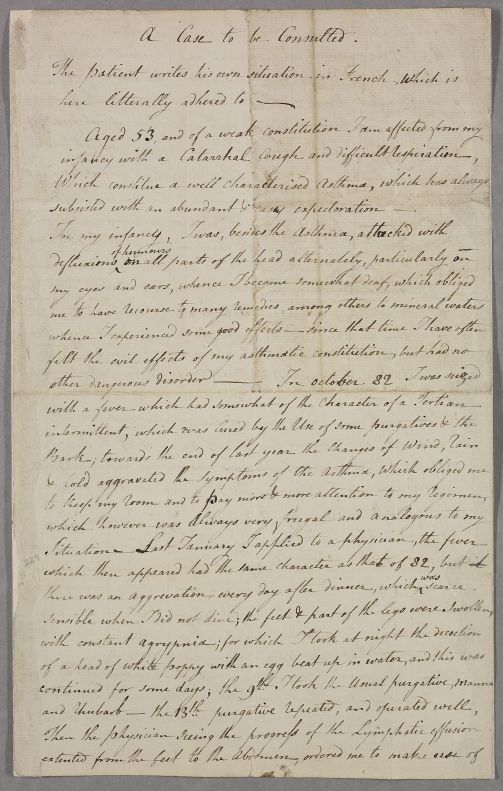 A Case to be Consulted.
The patient writes his own situation in French, which is
here litterally adhered to —
Aged 53, and of a weak constitution I am affected from my
infancy with a Catarrhal Cough and difficult respiration,
Which constitue a well characterised asthma, which has always
subsisted with an abundant & easy expectoration —.
In my infancy, I was, besides the Asthma, attacked with
defluxions of humours on all parts of the head alternately, particularly on
my eyes and ears, whence I became somewhat deaf, which obliged
me to have recourse to many remedies, among others to mineral waters
whence I experienced some good effects — Since that time I have often
felt the evil effects of my asthmatic constitution, but had no
other dangerous disorder —. In october 82 I was seized
with a fever which had somewhat of the Character of a Tertian
intermittent, which was cured by the Use of some purgatives & the
Bark; toward the end of last year the Changes of Wind, Rain
& Cold aggravated the Symptoms of the Asthma, which obliged me
to keep my Room and to pay more & more attention to my Regimen,
which however was always very frugal and analogous to my
Situation — Last January I applied to a physician, the fever
which then appeared had the same character as that of 82, but
there was an aggrevation every day after dinner, which was scarce
Sensible when I did not dine; the feet & part of the legs were Swollen,
with constant agrypnia; for which I took at night the decoction
of a head of white poppy with an egg beat up in water, and this was
Continued for some days; the 9th I took the Usual purgative, manna
and rhubarb — the 13th purgative repeated, and operated well,
Then the physician Seeing the progress of the Lymphatic effusion
extented from the feet to the Abdomen, ordered me to make use of